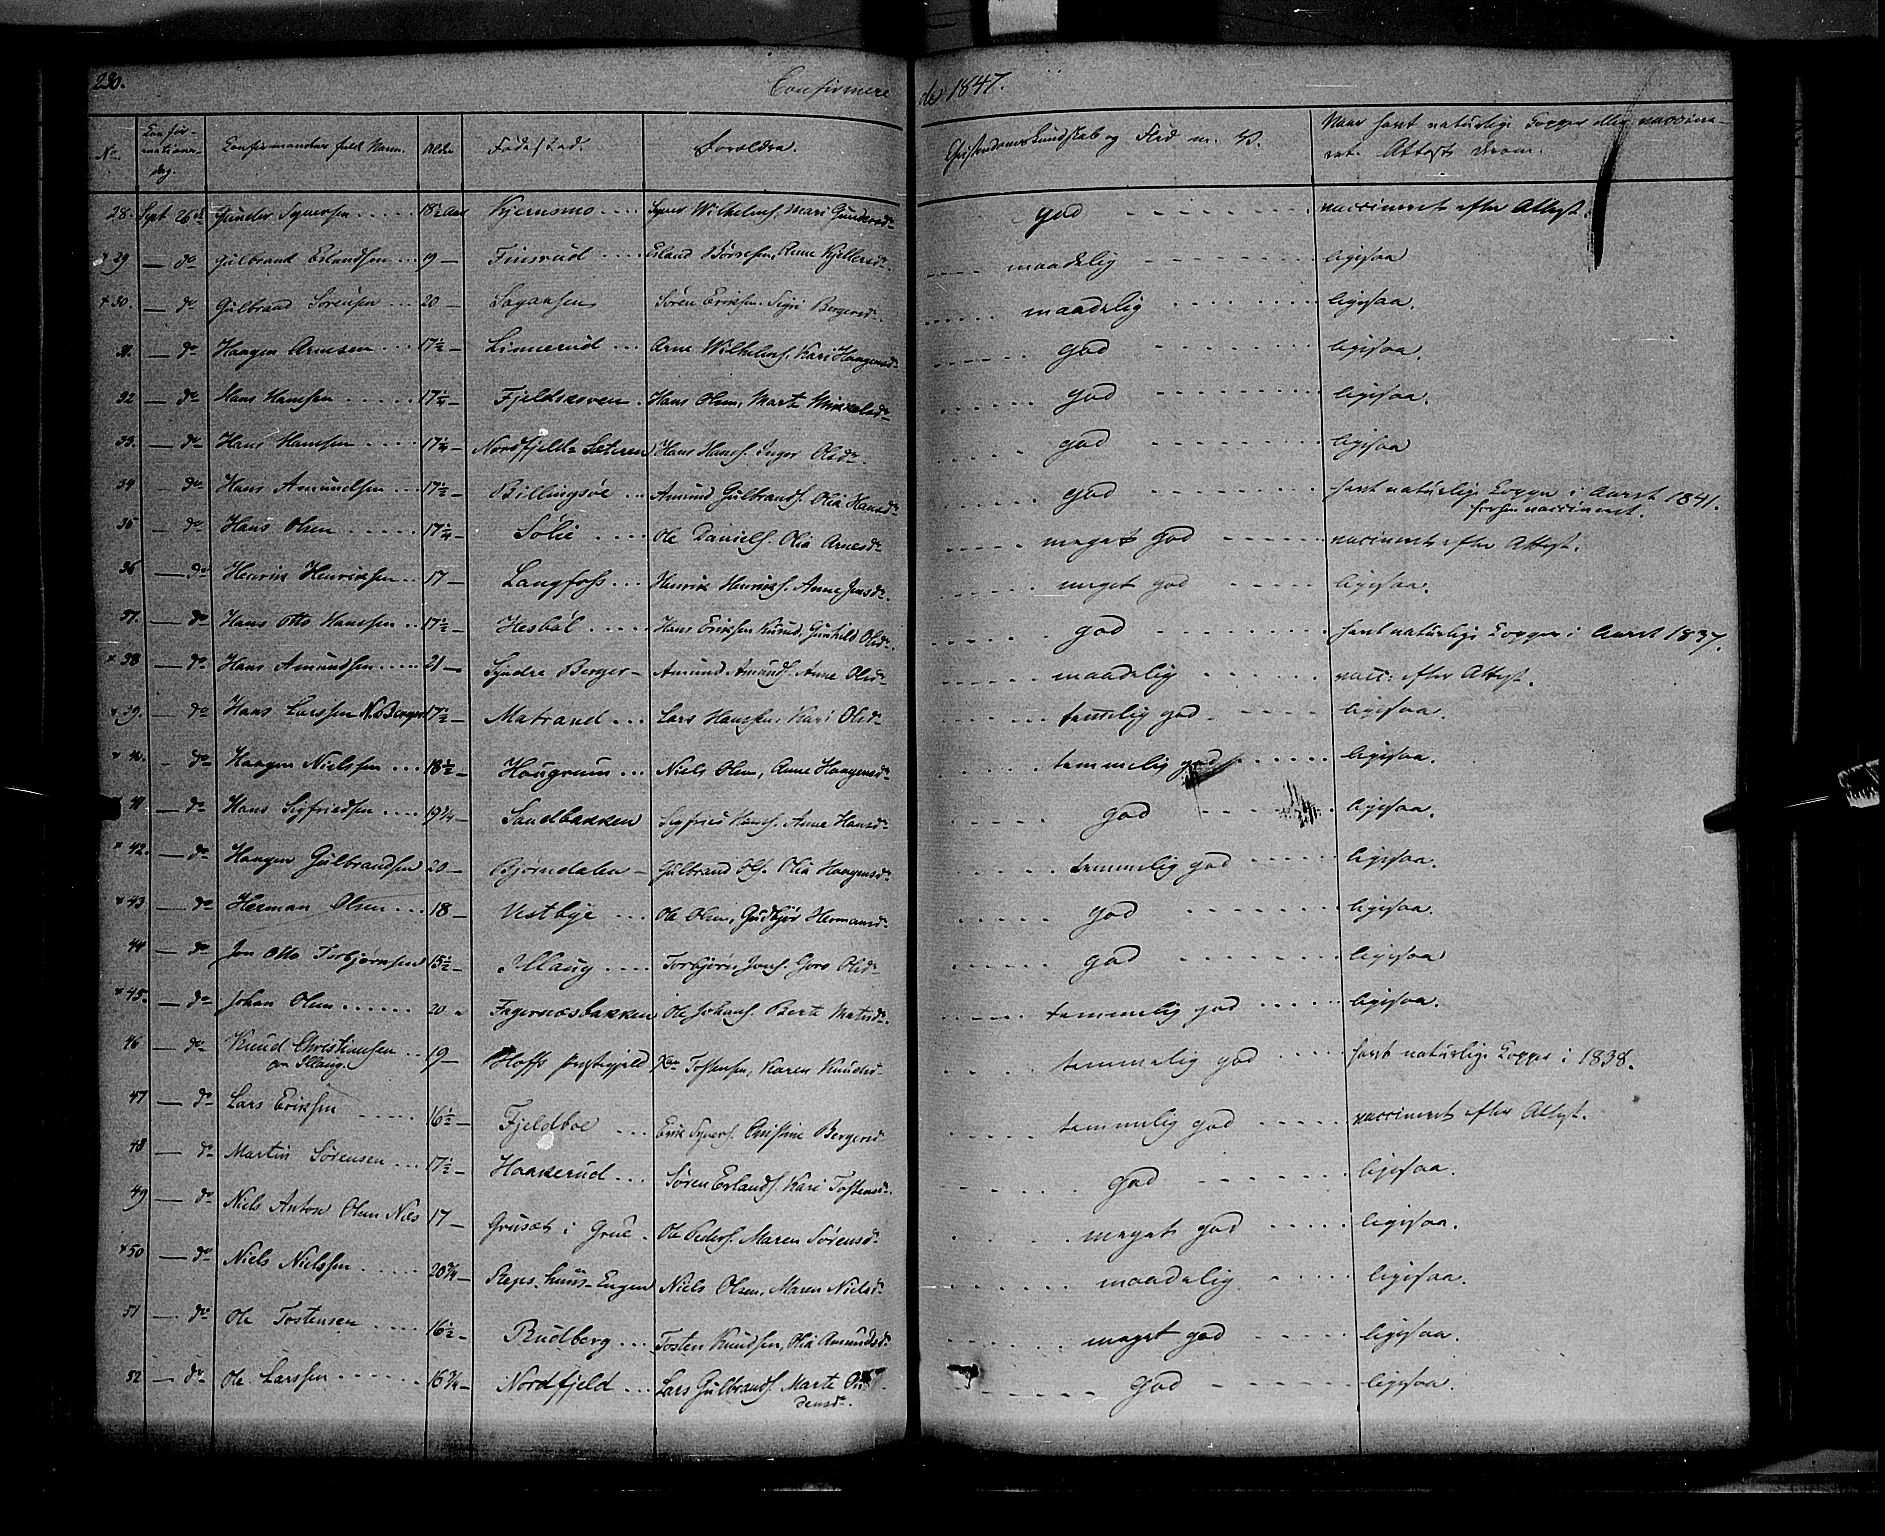 230. Confirmere de 1847.
No. Confirmations dag. Confirmandens fulde Navn. Alder Födested. Foreldre. Christendoms Kundskab og Flid m. V. Naar havt naturlige Kopper eller vaccineret. Attests derom.
28. Sept 26de Gunder Syversen 18½ Aar Kjernsmo Syver Wilhelms. Mari Gundersd. god vaccineret efter Attest.
× 29 — do Gulbrand Erlandsen 19 — Finsrud Erland Børresen, Anne Kjellsd. maadelig ligesaa
× 30. — do Gulbrand Sörensen 20 — Sagausen Sören Eriksen. Sigri Bergersd. maadelig ligesaa.
31. — do Haagen Arnesen 17½ — Linnerud Arne Wilhelms. Kari Haagensd. god ligesaa.
32 — do Hans Hansen 17¼ — Fjeldskoven Hans Olsen, Marte Mikkelsd. god ligesaa.
33. — do Hans Hansen 17¼ — Nordfjeld Sæteren Hans Hans. Inger Olsd. god ligesaa
34 — do Hans Amundsen 17½ — Billingsöe Amund Gulbrands. Olia Hansd. god havt naturlige Kopper i Aaret 1841.
forhen vaccineret.
35 — do Hans Olsen 17¼ — Solie Ole Daniels. Olia Arnesd. meget god vaccineret efter Attest.
36 — do Henrik Henriksen 17 — Langfoss Henrik Henriks. Anne Jensd. meget god ligesaa.
37. — do Hans Otto Hansen 17½ — Hesböl Hans Eriksen Gunhild Olsd. god havt naturlige Kopper i Aaret 1837.
× 38 — do Hans Amundsen 21 — Syndre Berger — Amund Amunds. Anne Olsd. maadelig vacc: efter Attest.
× 39. — do Hans Larssen N. Berger 17½ — Matrand Lars Hansen, Kari Olsd. temmelig god ligesaa.
× 40. — do Haagen Nielssen 18½ — Haugrum Niels Olsen, Anne Haagensd. temmelig god ligesaa.
41 — do Hans Sigfriedsen 19¾ — Sandbakken Sigfried Hans. Anne Hansd. god ligesaa.
× 42. — do Haagen Gulbrandsen 20 — Bjørndalen — Gulbrand Ols. Olia Haagensd. temmelig god ligesaa.
× 43 — do Herman Olsen 18 — Vestbye Ole Olsen, Gudbjör Hermansd. god ligesaa.
44 — do Jon Otto Torbjørnsen 15½ — Illaug Torbjörn Jons. Goro Olsd. god ligesaa
× 45. — do Johan Olsen 20 " Fagernæsbakken Ole Johans. Berte Matsd. temmelig god ligesaa.
46 — do Knud Christiansen 19 — Hoffs præstegjeld Xan Tostensen, Karen Knudsd. temmelig god havt naturlige Kopper i 1838.
paa Illaug.
47 — do Lars Eriksen 16½ — Fjeldboe Erik Syvers. Christine Bergersd. temmelig god vaccineret efter Attest.
48 — do Martin Sørensen 17½ — Haakerud Sören Erlands. Kari Tostensd. god ligesaa.
49 — do Niels Anton Olsen Næs 17 — Grusæt i Grue Ole Peders. Maren Sörensd. meget god ligesaa.
× 50 — do Niels Nielssen 20¾ — Engen Niels Olsen, Maren Nielsd. maadelig ligesaa.
51 — do Ole Tostensen 16½ — Rudberg Tosten Knudsen, Olia Amundsd. meget god ligesaa.
52 — do Ole Larssen 16¾ — Nordfjeld Lars Gulbrands. Marte
densd. god ligesaa.